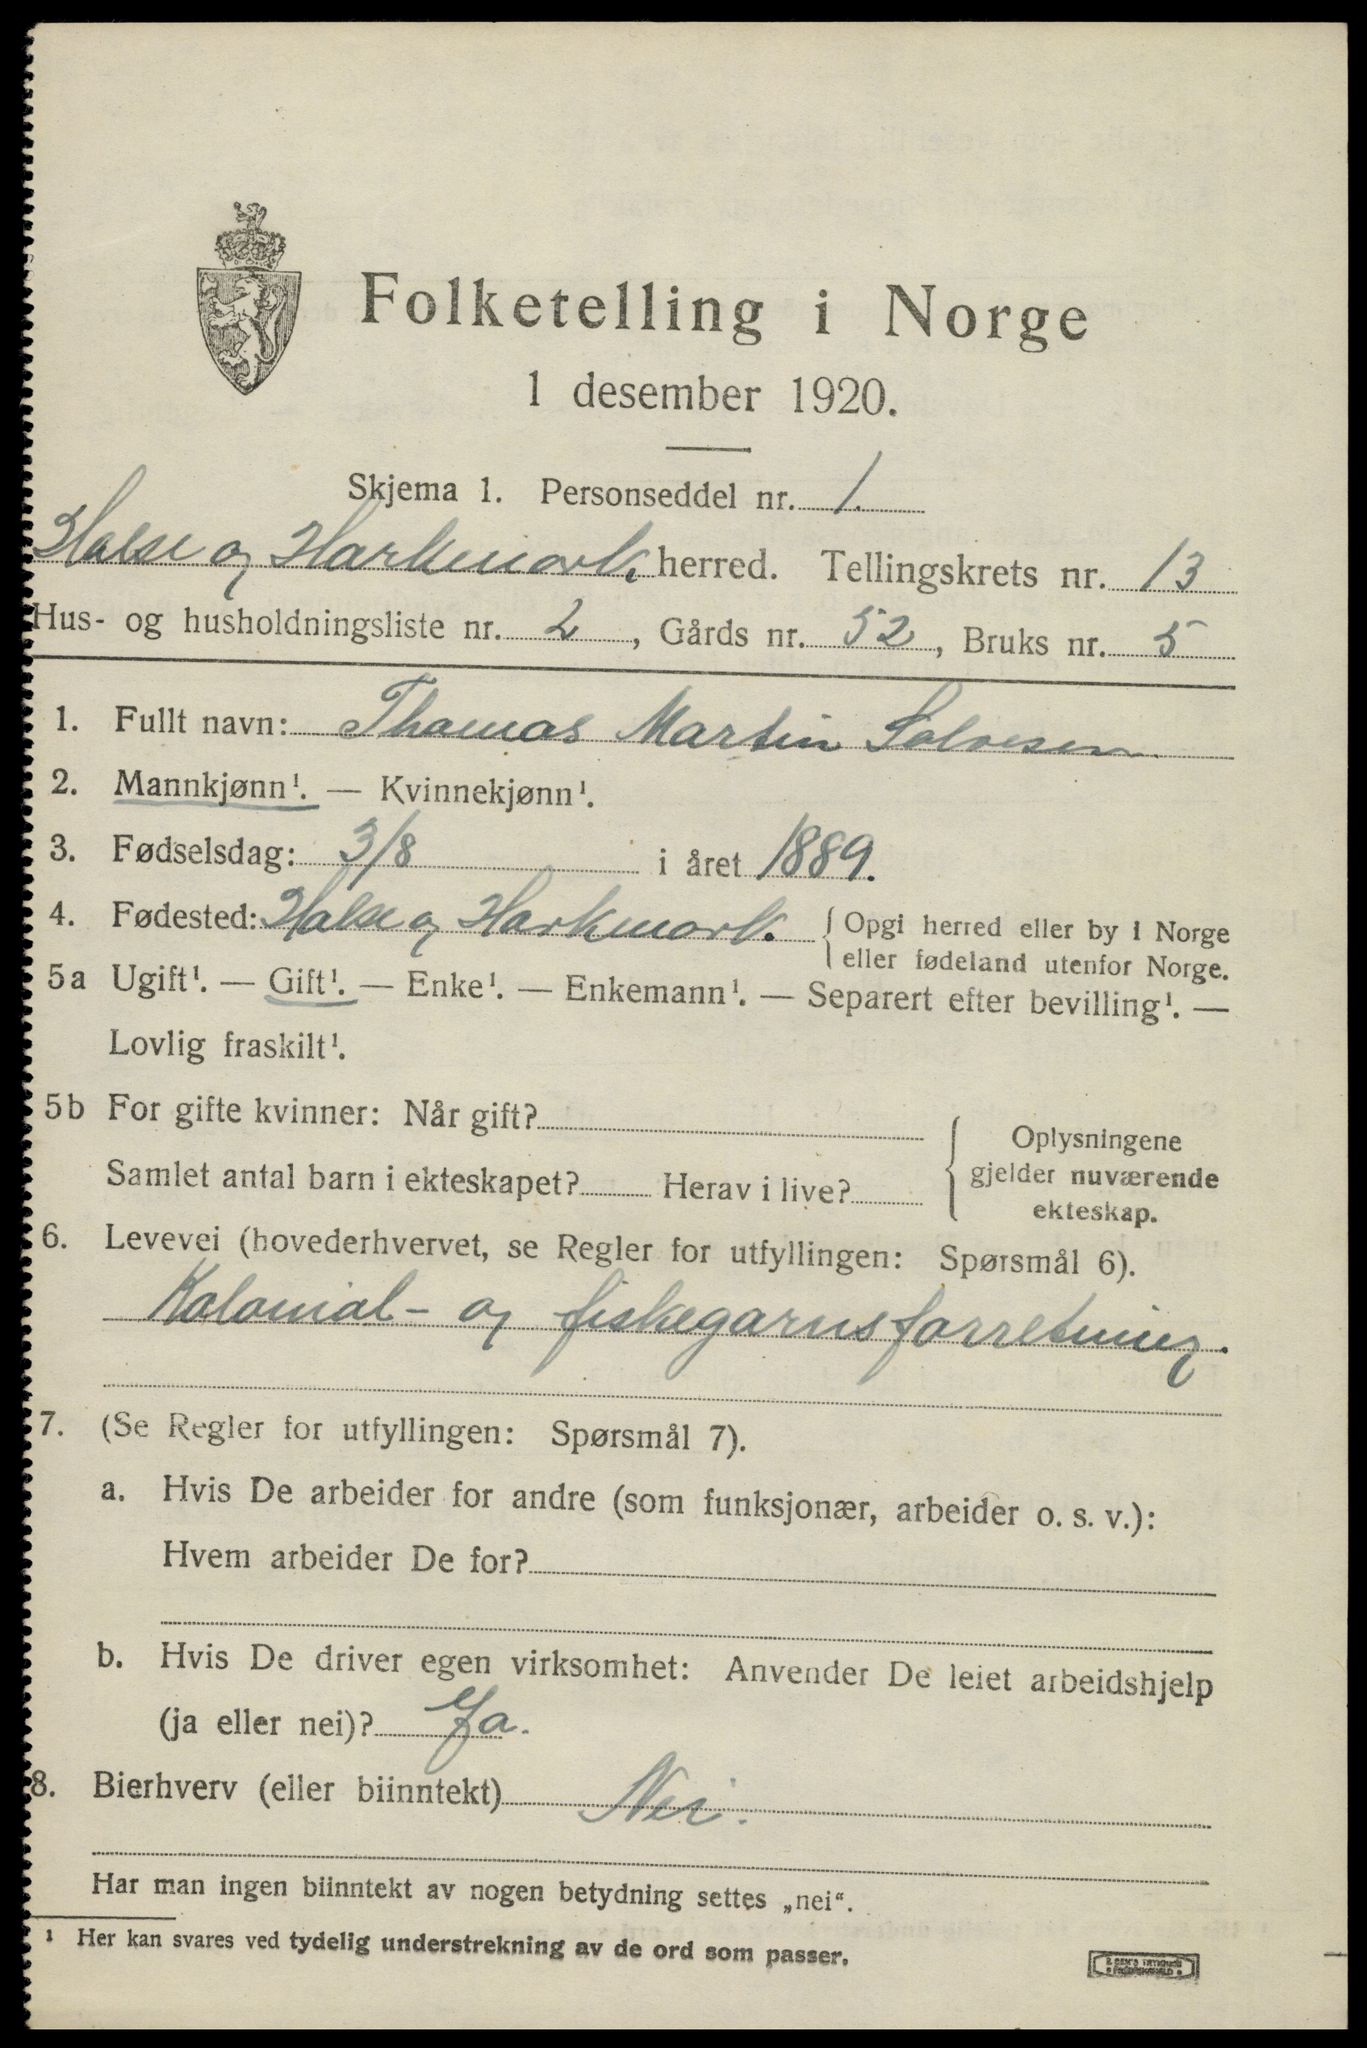 Folketelling i Norge
1 desember 1920.
Skjema 1. Personseddel nr. 1.
Halse og Harkmark. herred. Tellingskrets nr. 13
Hus- og husholdningsliste nr. 2, Gårds nr. 52, Bruks nr. 5
1. Fullt navn: Thomas Martin Salvesen
2. Mannkjønn¹. — Kvinnekjønn¹.
3. Fødselsdag: 3/8 i året 1889.
4. Fødested: Halse og Harkmark. { Opgi herred eller by i Norge
eller fødeland utenfor Norge.
5a Ugift¹. — Gift¹. — Enke¹. — Enkemann¹. — Separert efter bevilling¹. —
Lovlig fraskilt¹.
5b For gifte kvinner: Når gift?
Samlet antal barn i ekteskapet? Herav i live?
{ Oplysningene
gjelder nuværende
ekteskap.
6. Levevei (hovederhvervet, se Regler for utfyllingen: Spørsmål 6).
Kolonial- og fiskegarnsforretning.
7. (Se Regler for utfyllingen: Spørsmål 7).
a. Hvis De arbeider for andre (som funksjonær, arbeider o. s. v.):
Hvem arbeider De for?
b. Hvis De driver egen virksomhet: Anvender De leiet arbeidshjelp
(ja eller nei)? Ja.
8. Bierhverv (eller biinntekt) Nei.
Har man ingen biinntekt av nogen betydning settes „nei“.
¹ Her kan svares ved tydelig understrekning av de ord som passer.